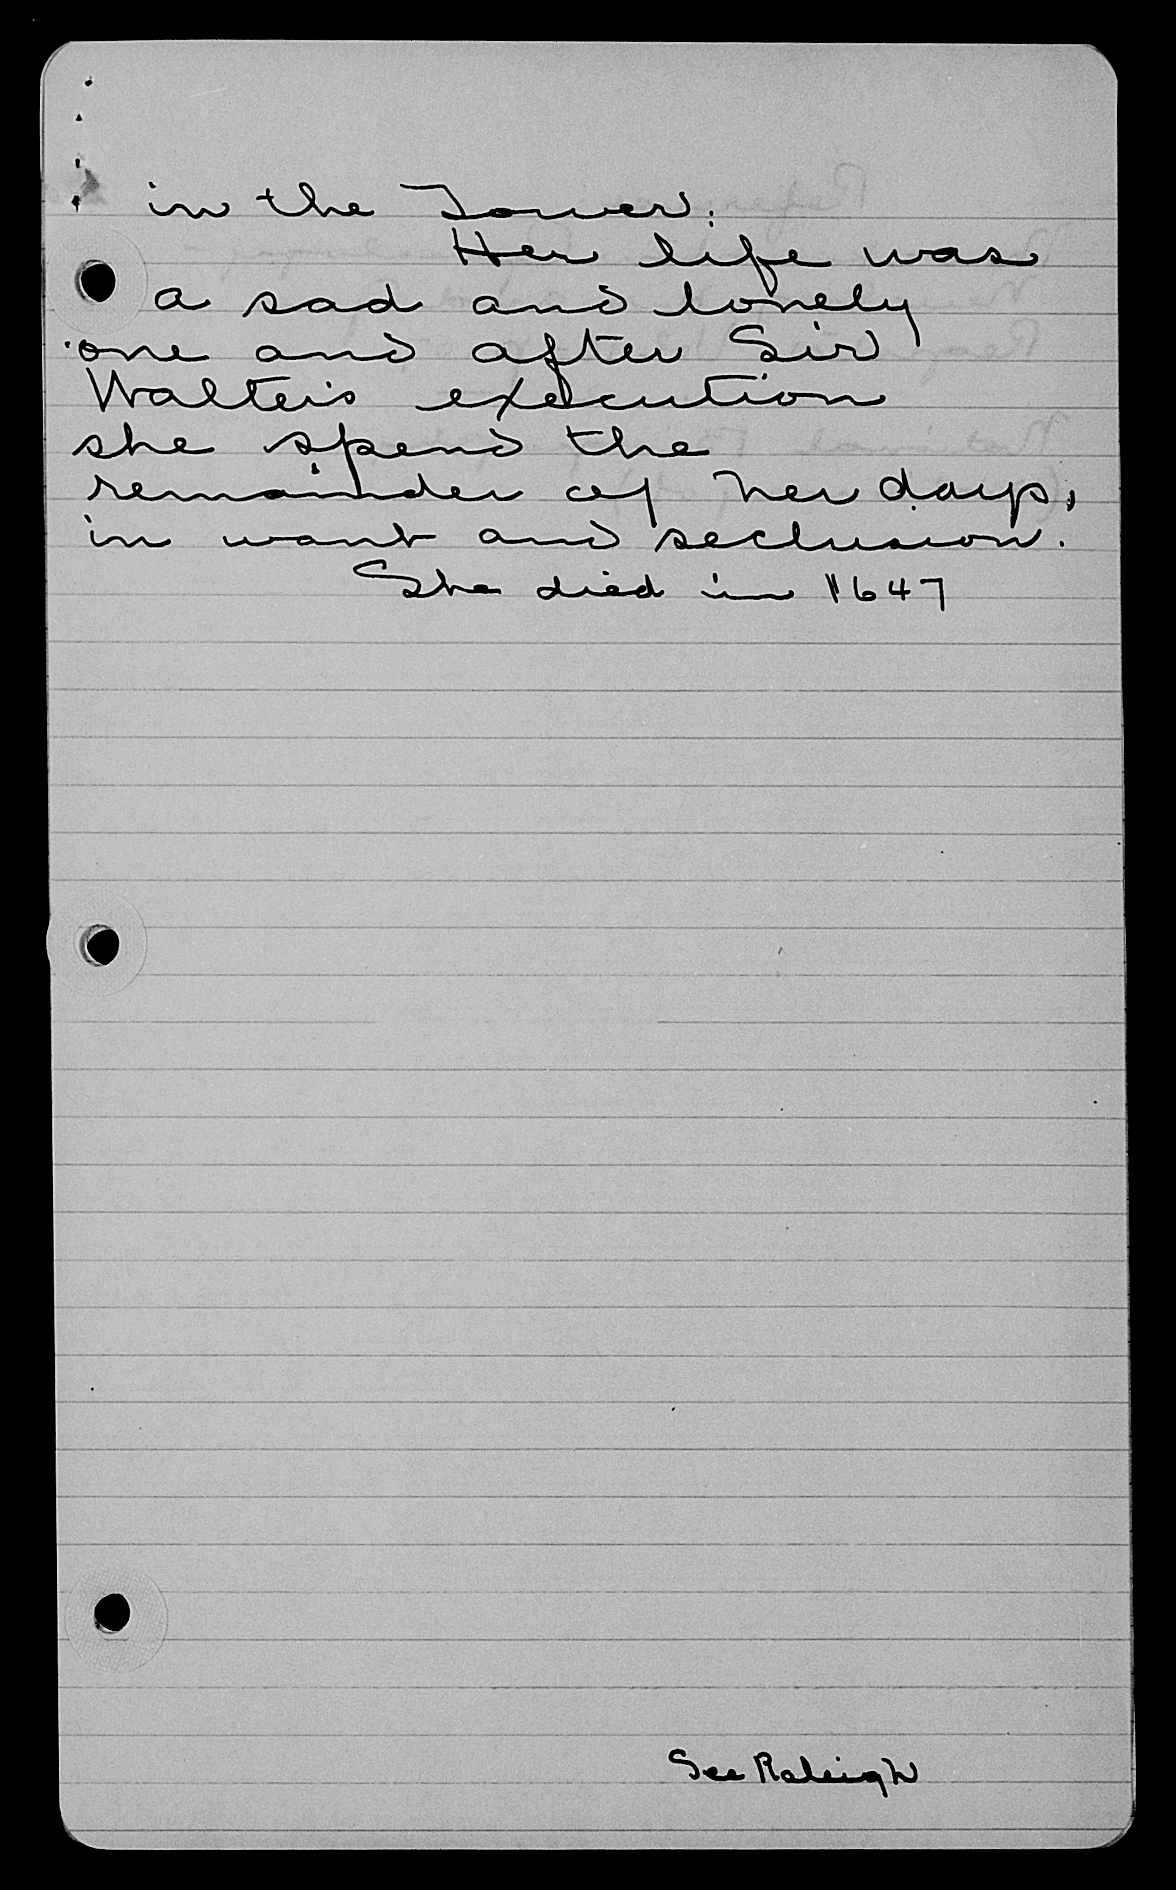 in the Tower.
Her life was
a sad and lonely
one and after Sir
Walter's execution
she spend the
remainder of her days,
in want and seclusion.
She died in 1647
See Raleigh